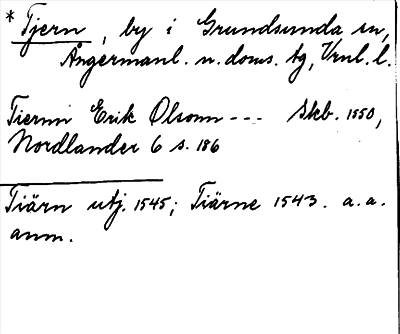 * Tjern, by i Grundsunda sn,
Ångermanl. n. doms. tg, Vrnl. l.
Tiernn Erik Olsonn --- Skb. 1550,
Nordlander 6 s. 186
Tiärn utj. 1545; Tiärne 1543. a.a.
anm.